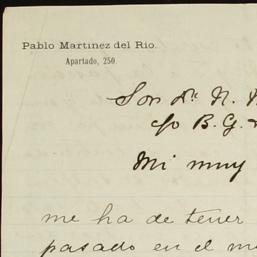 Pablo Martinez del Rio.
Apartado, 250.
Sor Dn N.
c/o B. G.
Mi muy
me ha de tener
pasado en el